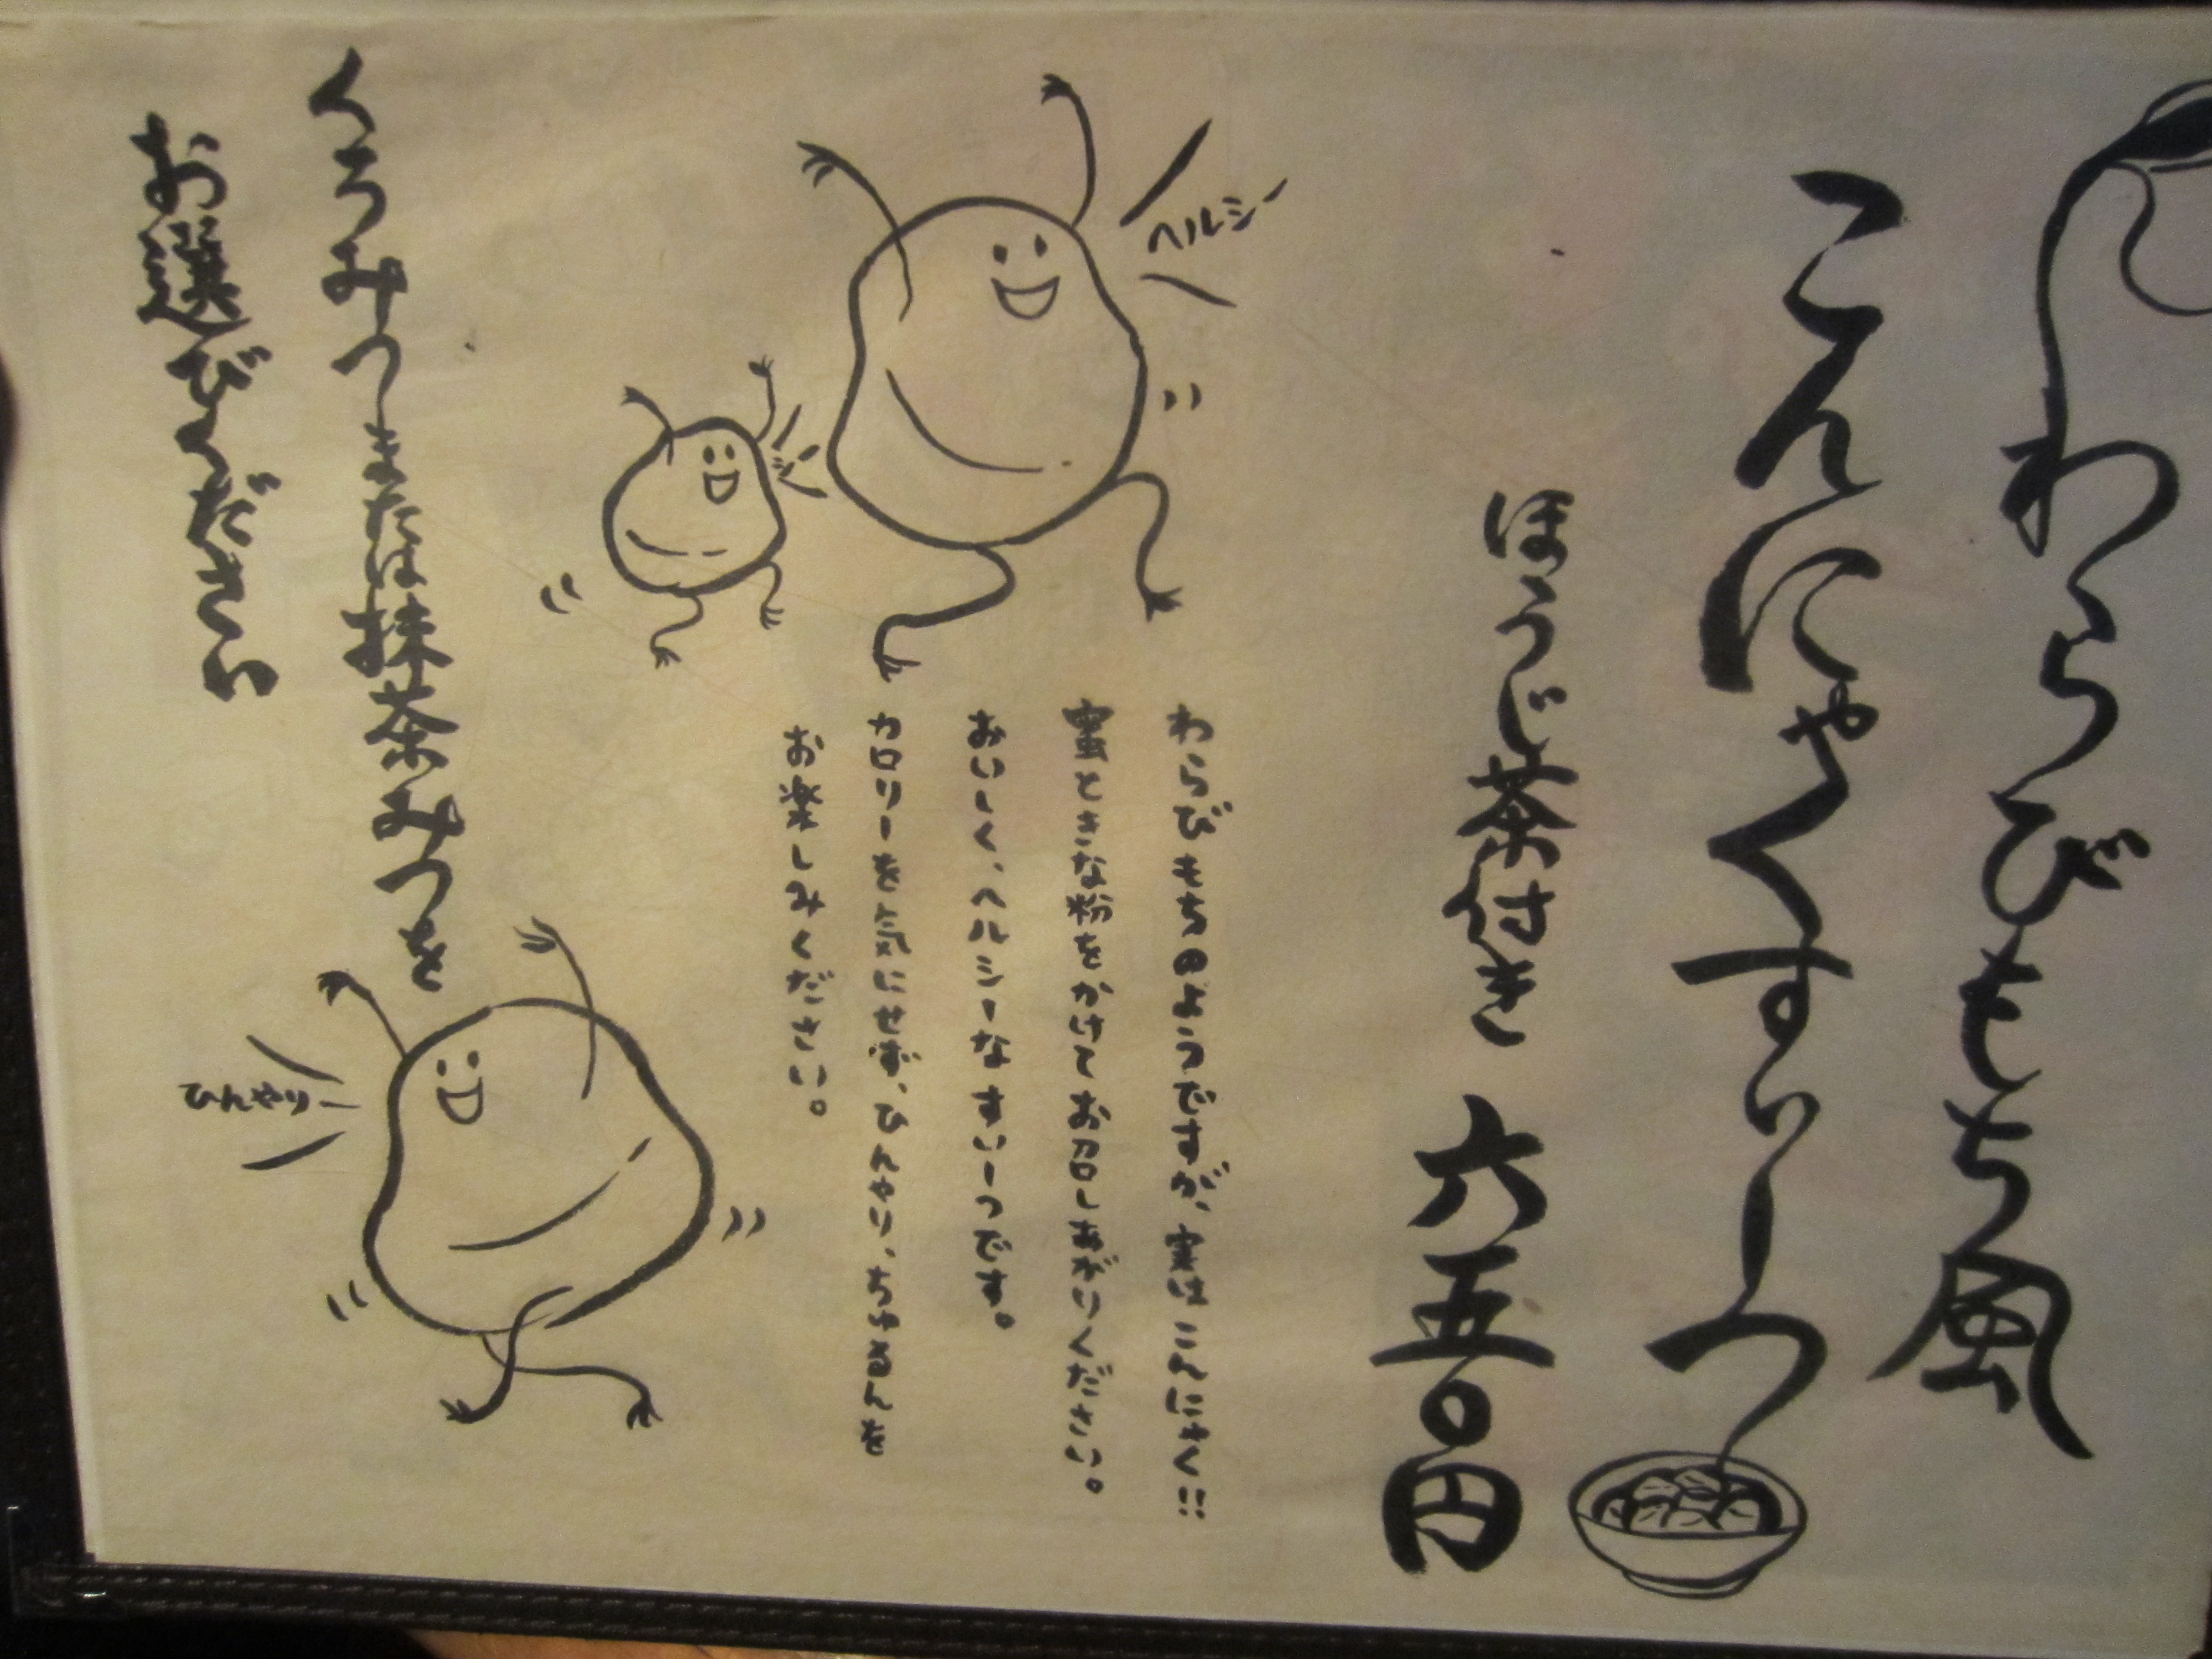 わらびもち風
こんにゃくすぃーつ
ほうじ茶付き 六五〇円
ヘルシー
わらびもちのようですが、実はこんにゃく!!
蜜ときな粉をかけてお召しあがりください。
おいしく、ヘルシーなすいーつです。
カロリーを気にせず、ひんやり、ちゅるんを
お楽しみください。
シー
くろみつまたは抹茶みつを
お選びください
ひんやりー